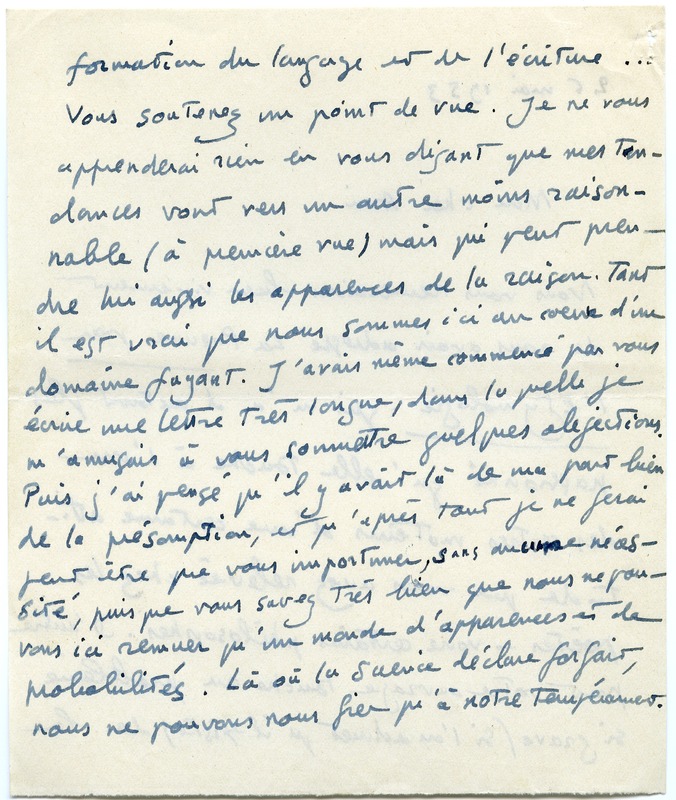 formation du langage et de l'écriture ...
Vous soutenez un point de vue. Je ne vous
apprenderai rien en vous disant que mes ten-
dances vont vers un autre moins raison-
nable (à première vue) mais qui peut pren-
dre lui aussi les apparences de la raison. Tant
il est vrai que nous sommes ici au coeur d'un
domaine fuyant. J'avais même commencé par vous
écrire une lettre très longue, dans laquelle je
m'amusais à vous soumettre quelques objections.
Puis j'ai pensé qu'il y avait là de ma part bien
de la présomption, et qu'après tout je ne ferai
peut-être que vous importuner, sans aucune néces-
sité, puisque vous savez très bien que nous ne pou-
vons ici remuer qu'un monde d'apparences et de
probabilités. Là où la Science déclare forfait,
nous ne pouvons nous fier qu'à notre tempérament.